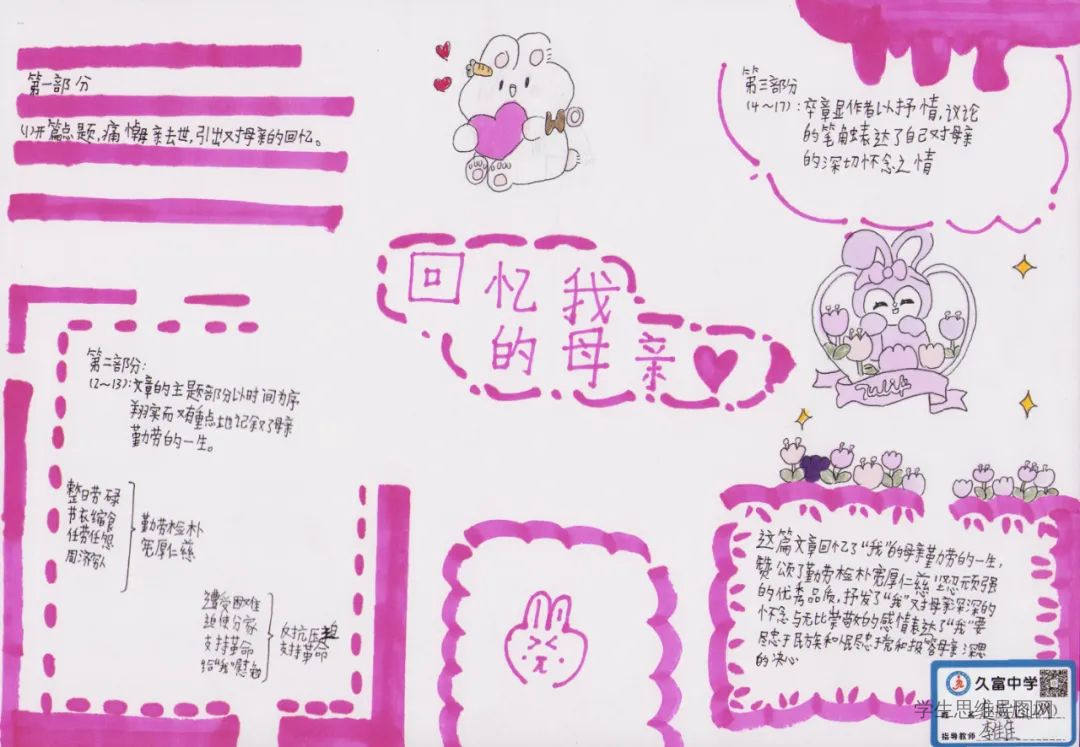 第一部分
(1)开篇点题,痛悼母亲去世,引出对母亲的回忆。
第三部分
(14~17):卒章显作者以抒情,议论
的笔触表达了自己对母亲
的深切怀念之情
回忆我
的母亲
Tulip
第二部分:
(2~13):文章的主题部分以时间为序
翔实而又有重点地记叙了母亲
勤劳的一生。
整日劳碌
节衣缩食
任劳任怨
周济
勤劳检朴
宽厚仁慈
遭受困难
迫使分家
支持革命
给"我"慰勉
反抗压迫
支持革命
这篇文章回忆了"我"的母亲勤劳的一生,
赞颂了勤劳检朴宽厚仁慈坚忍顽强
的优秀品质,抒发了"我"对母亲深深的
怀念与无比崇敬的感情表达了"我"要
尽忠于民族和人民尽忠于党和报答母亲深恩
的决心
久富中学
学生思维导图网
指导教师